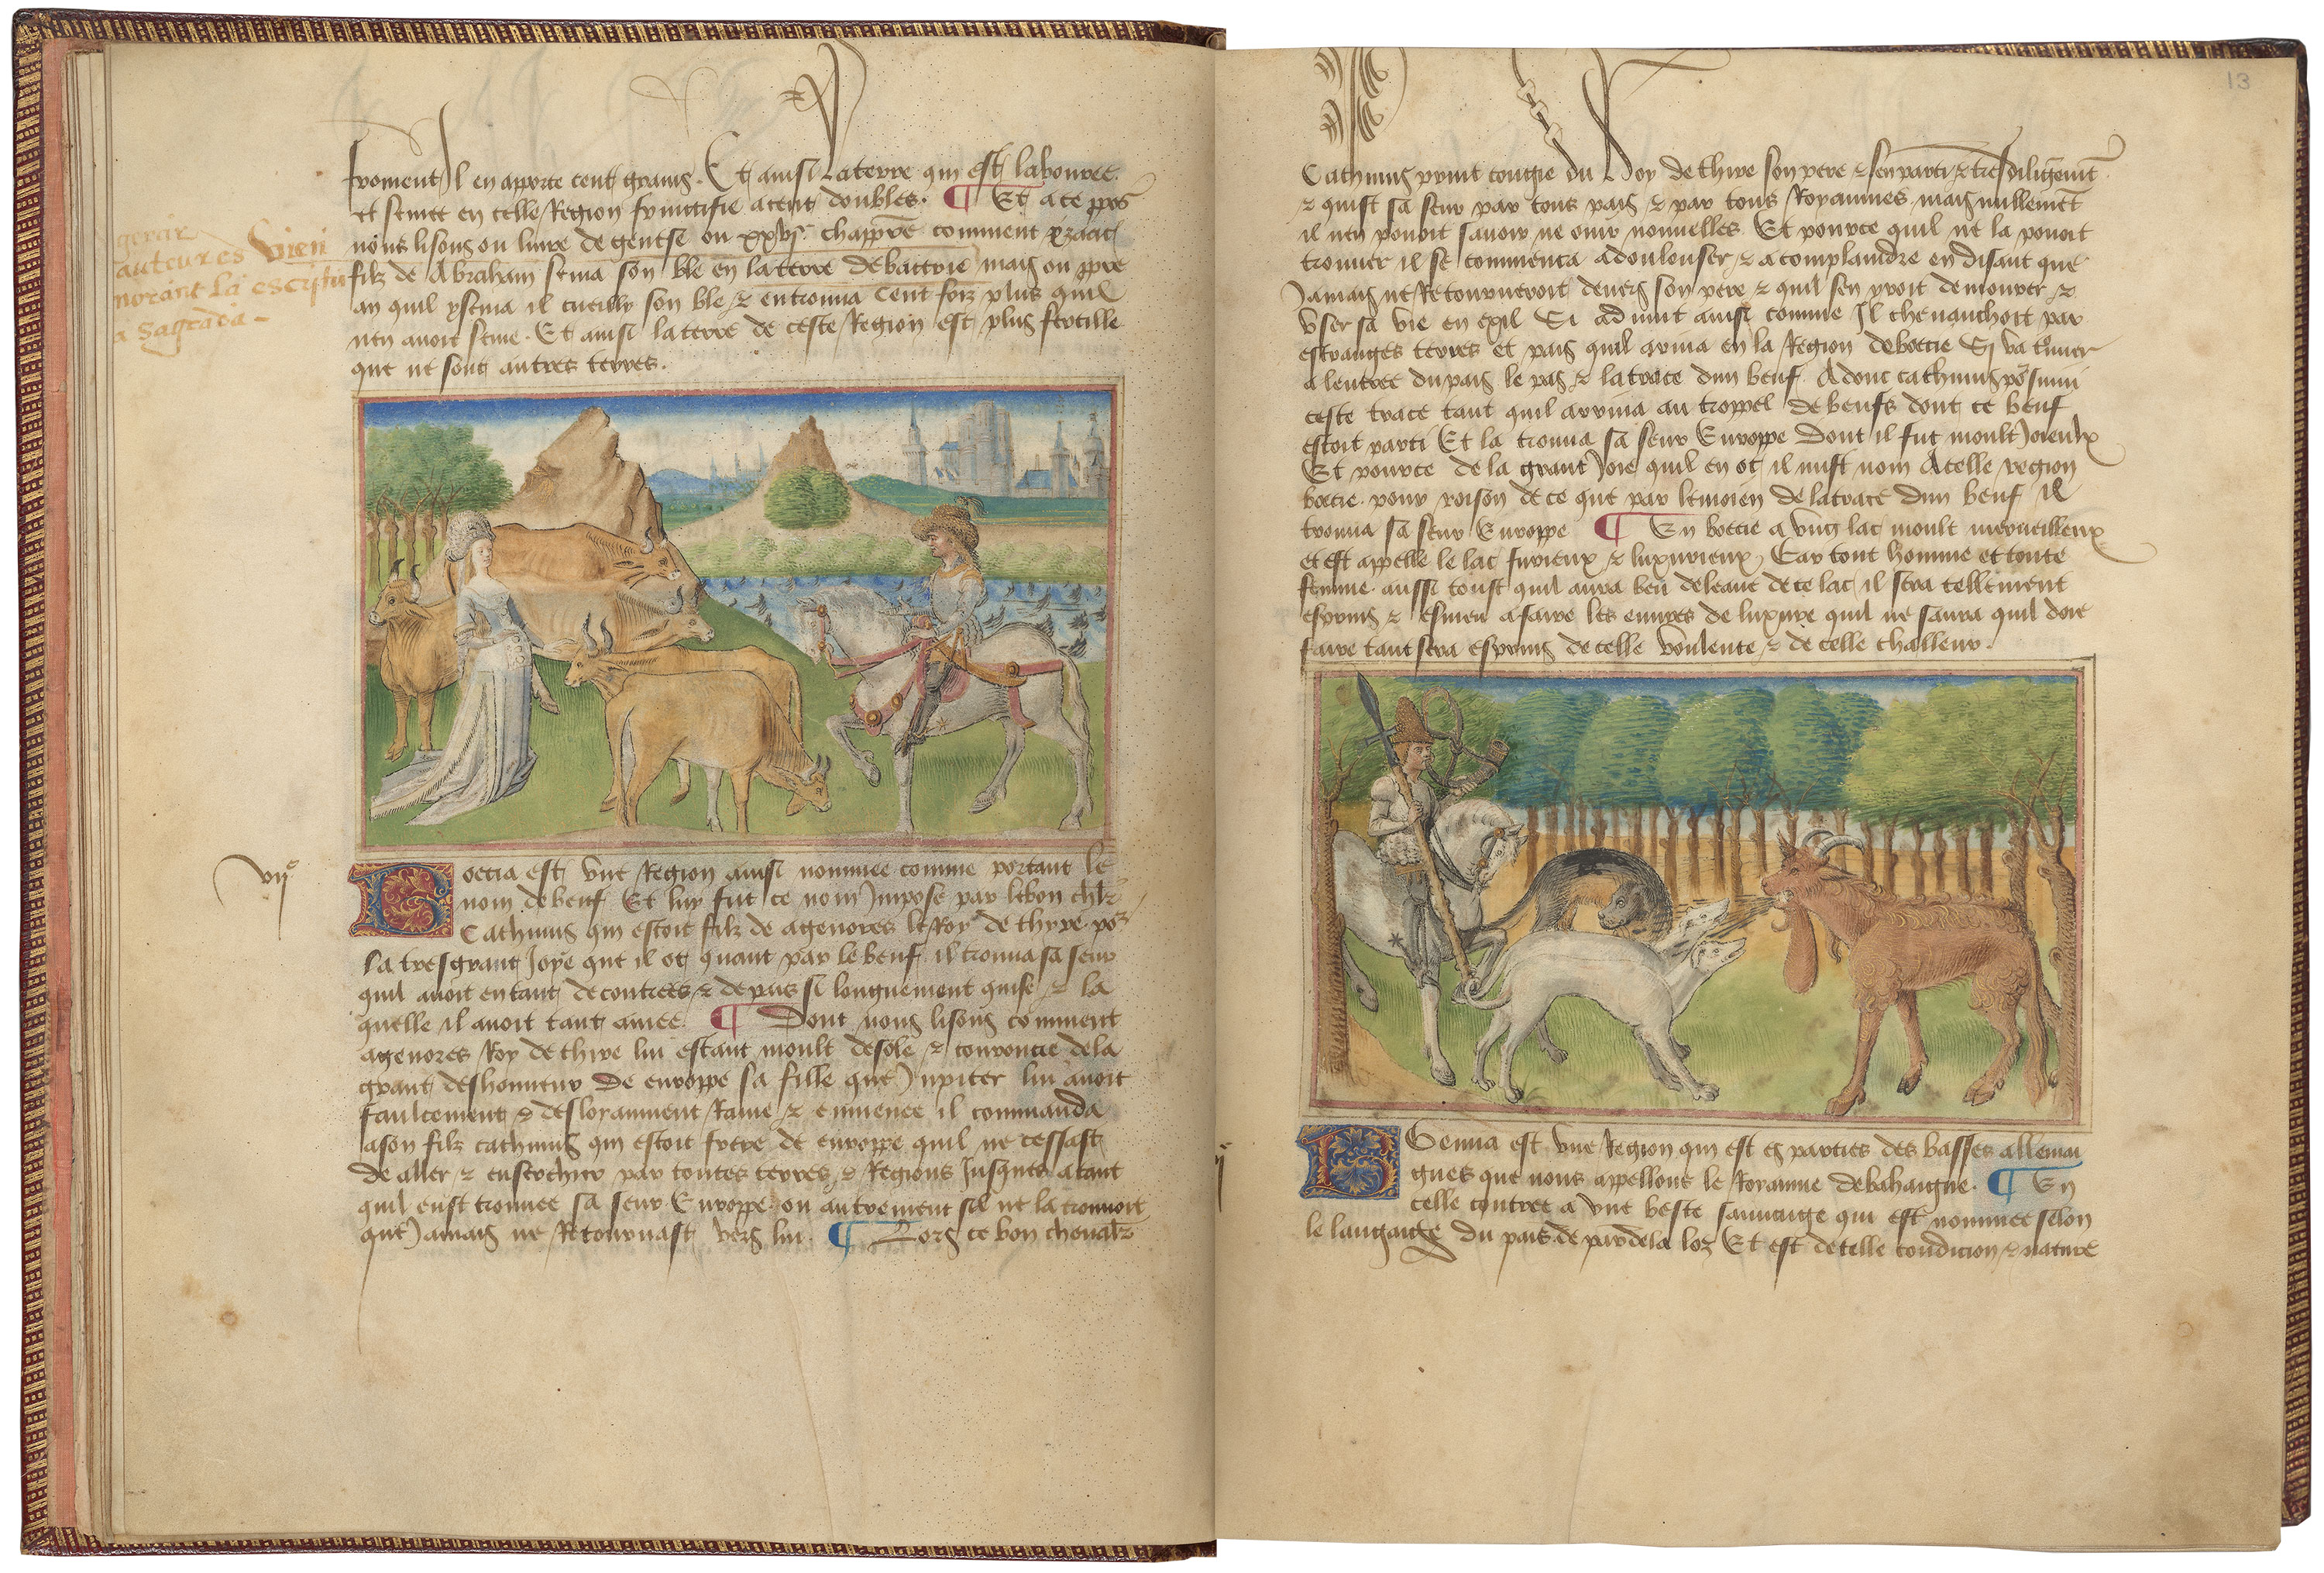 froment Il en apporte cent grains. Et ainsi La terre qui est labouree
et semee en celle Region fructifie a cent doubles. ¶ Et a ce ppos
nous lisons ou livre de genese ou xxvj.e chappre comment yzaac
filz de Abraham sema son ble en la terre de bactrie mais ou ppre
an quil y sema il cueilly son ble / & en trouva Cent foiz plus quil
nen avoit seme. Et ainsi la terre de ceste Region est plus fertille
que ne sont autres terres.
gerar
autor es Vien
norant La escritu
a Sagrada -
vije
Boecia est une Region ainsi nommee comme portant le
nom de beuf Et luy fut ce nom Impose par le bon chlr
Cathmus qui estoit filz de agenores le Roy de thyre. po2
La tresgrant Joye que il ot quant par le beuf il trouva sa seur
quil avoit en tant de contrees & de pais si longuement quise & la
quelle il avoit tant amee. ¶ Dont nous lisons comment
agenores Roy de thire lui estant moult desole & couroucie de la
grant deshonneur De europpe sa fille que Jupiter lui avoit
faulcement & desloyaument Ravie & emmenee il commanda
a son filz cathmus qui estoit frere de europpe quil ne cessast
de aller & encerchier par toutes terres & Regions Jusques a tant
quil eust trouvee sa seur Europpe. ou autrement sil ne la trouvoit
que Jamais ne Retournast vers lui. ¶ Lors ce bon chevalr
13
Cathmus print congie du Roy de thire son pere & sen parti & tres diligenmt
& quist sa seur par tous pais & par tous Royaumes mais nullement
il nen pouoit savoir ne ouir nouvelles Et pource quil ne la pouoit
trouver il se commenca a doulouser & a complaindre en disant que
Jamais ne Retourneroit devers son pere & quil sen yroit demourer &
User sa vie en exil Si advint ainsi comme Il chevauchoit par
estranges terres et pais quil ariva en la Region de boecie Si va trouver
a lentree du pais le pas & la trace dun beuf. Adonc cathmus poursuivi
ceste trace tant quil arriva au troppel de beufs dont ce beuf
estoit parti Et la trouva sa seur Europpe Dont il fut moult Joieulx
Et pource de la grant Joie quil en ot il mist nom A celle region
boecie. pour raison de ce que par lemoien de la trace dun beuf il
trouva sa seur Europpe ¶ En boecie a Ung lac moult merveilleux
et est appelle le lac furieux & luxurieux Car tout homme et toute
femme aussi toust quil aura beu de leaue de ce lac il sera tellement
espris & esmeu a faire les euvres de luxure quil ne saura quil doie
faire tant sera espris de celle voulente & de celle challeur.
BOemia est une Region qui est es parties des basses allemai
gnes que nous appellons le Royaume de bahaigne. ¶ En
celle contree a une beste sauvaige qui est nommee selon
le langaige du pais de par dela loz Et est de telle condicion & nature